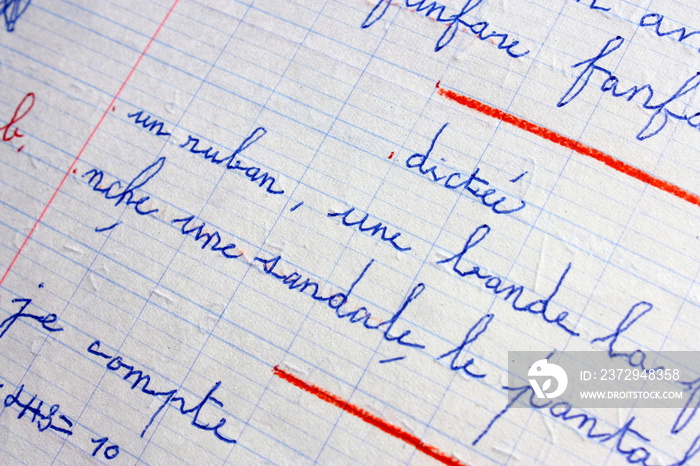 fanfare fanfa
dictée
b. un ruban, une bande la
nche une sandale, le panta
je compte
= 10
ID: 2372948358
WWW.DROITSTOCK.COM